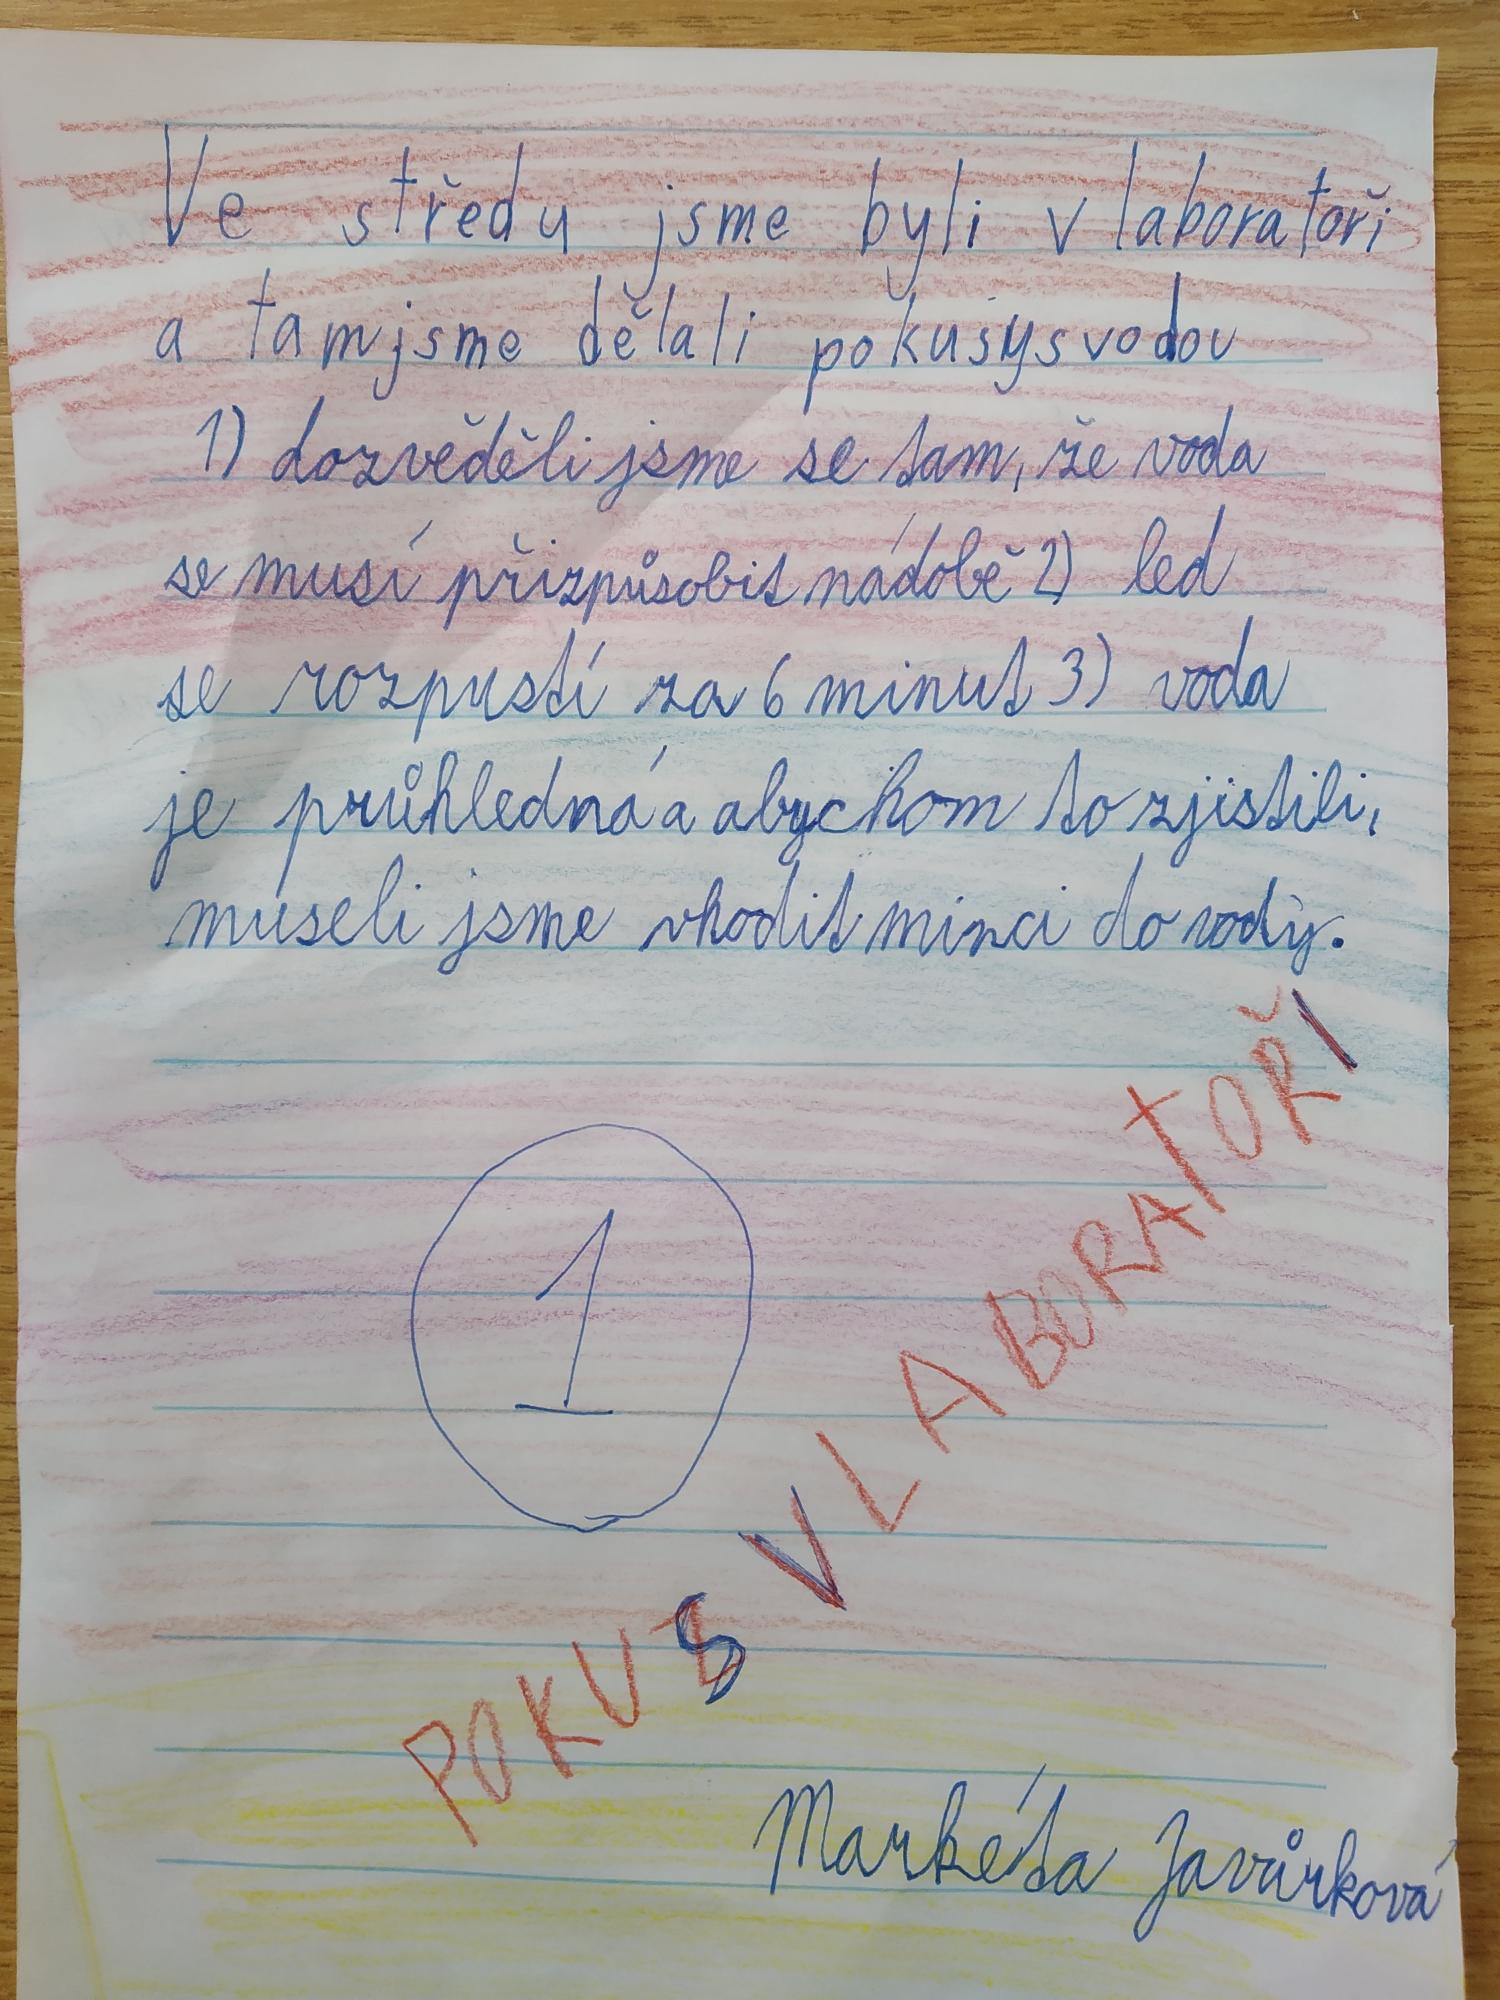 Ve středu jsme byli v laboratoři
a tam jsme dělali pokusy s vodou
1) dozvěděli jsme se tam, že voda
se musí přizpůsobit nádobě 2) led
se rozpustí za 6 minut 3) voda
je průhledná a abychom to zjistili,
museli jsme vhodit minci do vody.
1
POKUS V LABORATOŘI
Markéta Javůrková